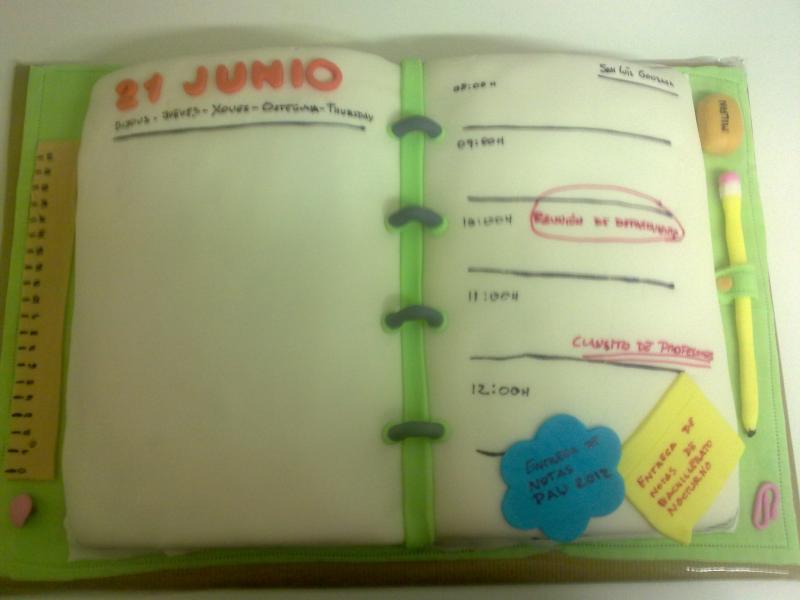 21 JUNIO
DIJOUS - JUEVES - XOVES - OSTEGUNA - THURSDAY
SAN LUIS GONZAGA
08:00H
09:00H
10:00H
REUNIÓN DE
11:00H
CLAUSTRO DE PROFESORES
12:00H
ENTREGA DE
NOTAS
PAU 2012
ENTREGA DE
NOTAS DE
BACHILLERATO
NOCTURNO
MILAN